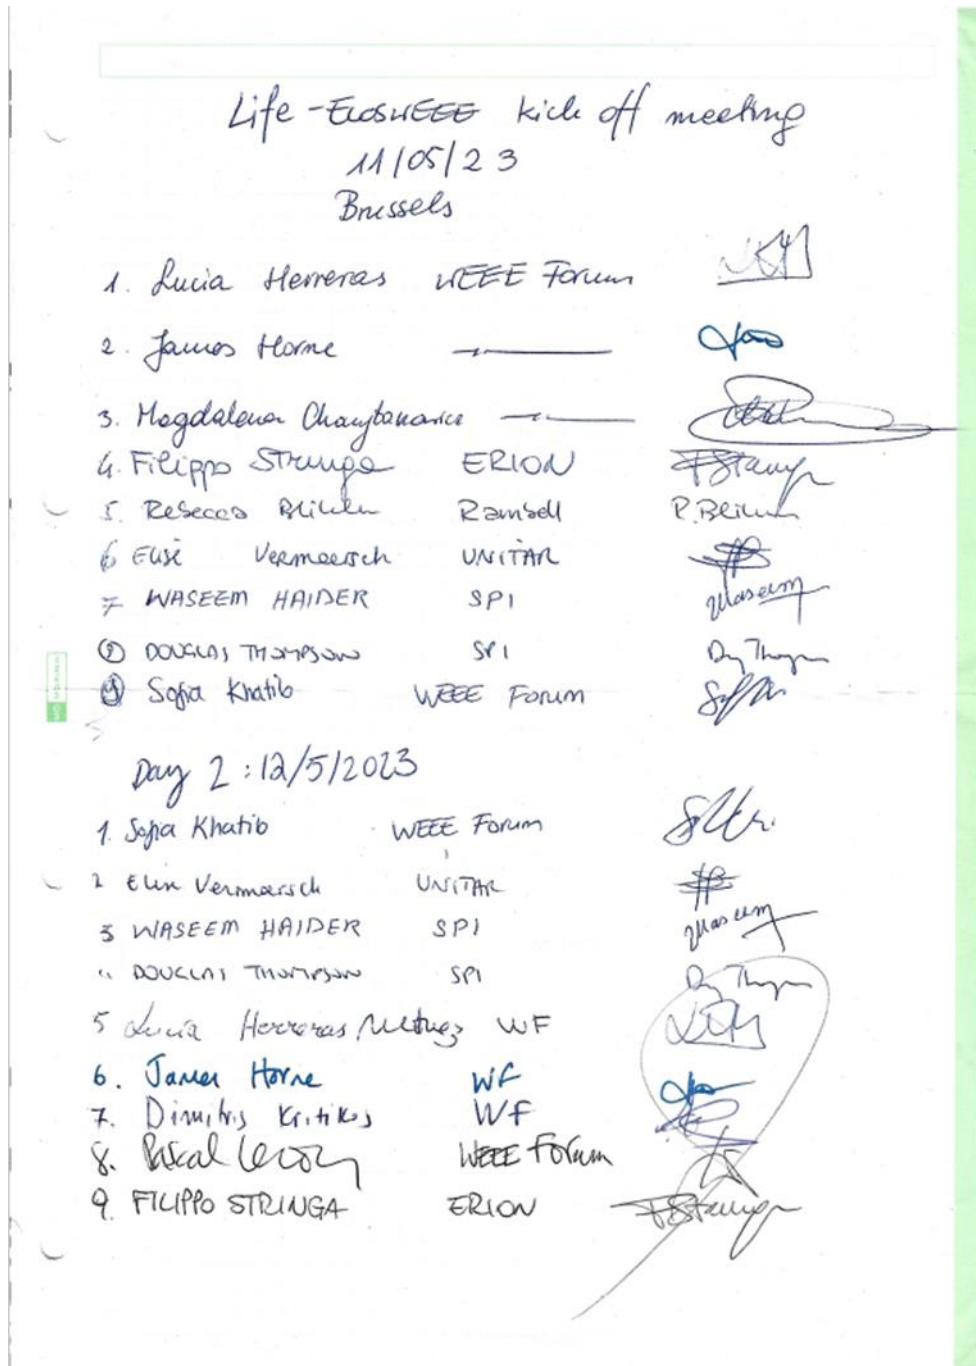 Life - EloswEEE kick off meeting
11/05/23
Brussels
1. Lucia Herreras WEEE Forum
2. James Horne
3. Magdalena
4. Filippo Stringa ERION FStringa
5. Rebecca Ramboll R.
6 Elise Vermeersch UNITAR
7 WASEEM HAIDER SPI Waseem
8 DOUGLAS THOMPSON SPI
9 Sofia Khatib WEEE Forum
Day 2 : 12/5/2023
1. Sofia Khatib WEEE Forum
2 Elise Vermeersch UNITAR
3 WASEEM HAIDER SPI Waseem
" DOUGLAS THOMPSON SPI
5 Lucia Herreras WF
6. James Horne WF
7. Dimitris Kritikos WF
8. Pascal Leroy WEEE Forum
9. FILIPPO STRINGA ERION FStringa